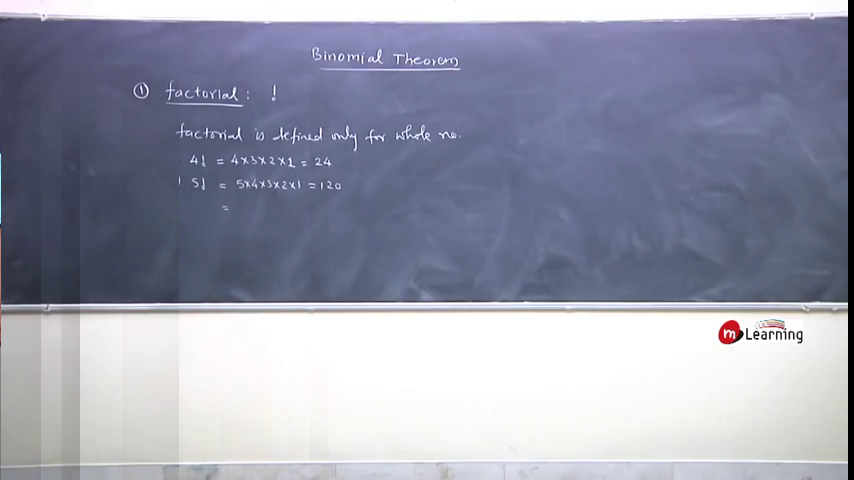 Binomial Theorem
① factorial : !
factorial is defined only for whole no.
4! = 4×3×2×1 = 24
5! = 5×4×3×2×1 = 120
=
m Learning